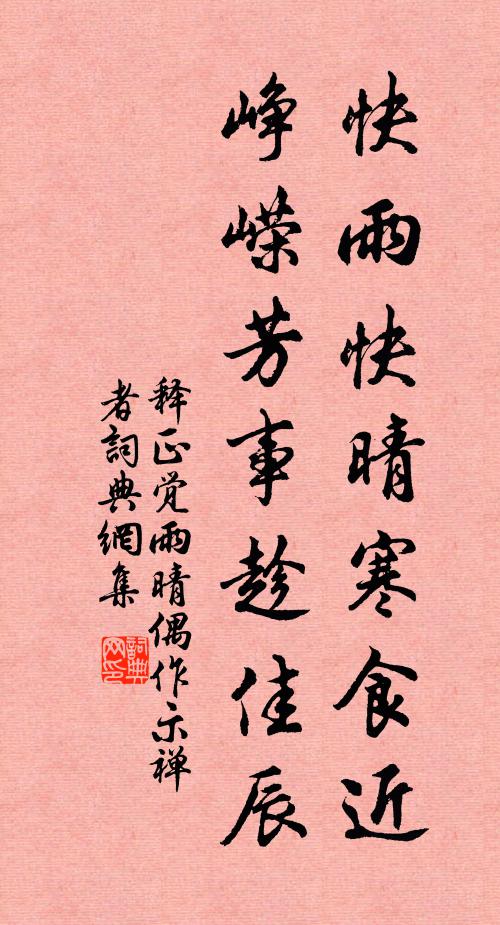 快雨快晴寒食近
峥嵘芳事趁佳辰
释正觉雨晴偶作示禅
者詞典網集
詞典网印